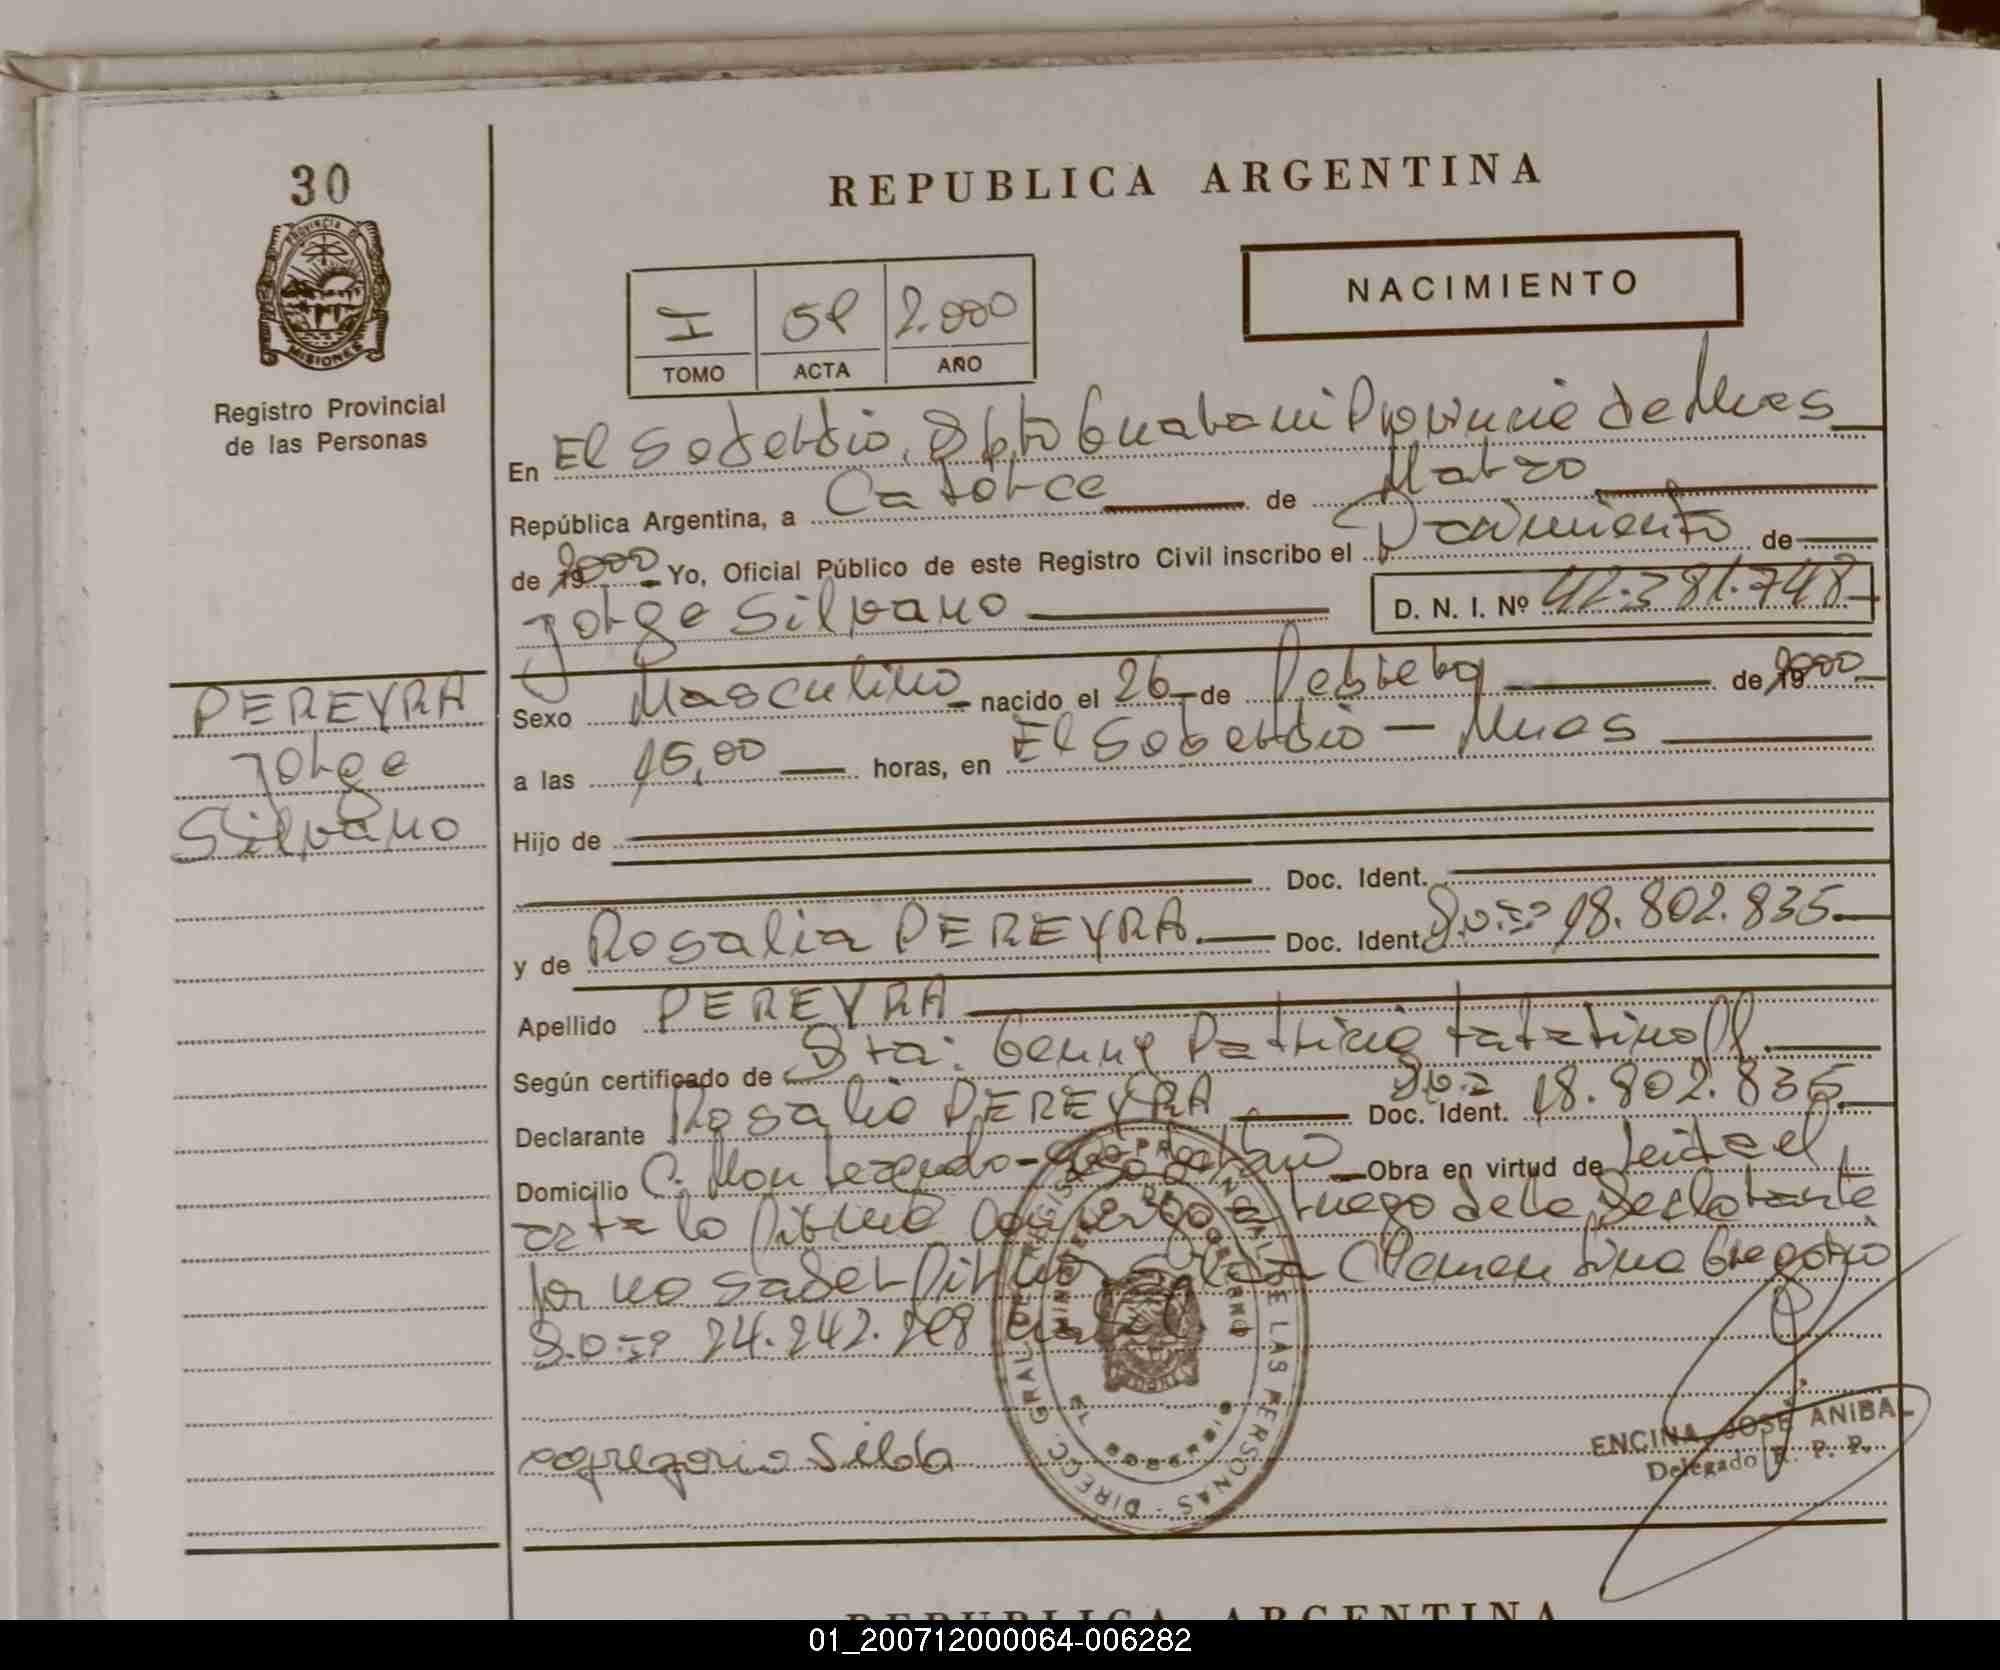 30
REPUBLICA ARGENTINA
PROVINCIA DE
MISIONES
NACIMIENTO
I 2.000
TOMO ACTA AÑO
Registro Provincial
de las Personas
En El Soberbio, Dpto Guarani Provincia de Mnes
República Argentina, a Catorce de Marzo
de 2000 Yo, Oficial Público de este Registro Civil inscribo el Nacimiento de
Jorge Silvano D. N. I. Nº 42.381.748
PEREYRA
Jorge
Silvano
Sexo Masculino nacido el 26 de Febrero de 2000
a las 15,00 horas, en El Soberbio - Mnes
Hijo de
Doc. Ident.
y de Rosalia PEREYRA Doc. Ident. 18.802.835
Apellido PEREYRA
Según certificado de Sra: Genny Patricia
Declarante Rosalia PEREYRA Doc. Ident. 18.802.835
Domicilio C. Monteagudo - El Soberbio Obra en virtud de Leida el
acta la firma a ruego de la Declarante
por no saber firmar Clementina Gregorio
24.242.
Gregorio Silda
ENCINA, JOSÉ ANIBAL
Delegado R. P. P.
DIRECC. GRAL. REGISTRO PROVINCIAL DE LAS PERSONAS
REPUBLICA ARGENTINA
01_200712000064-006282